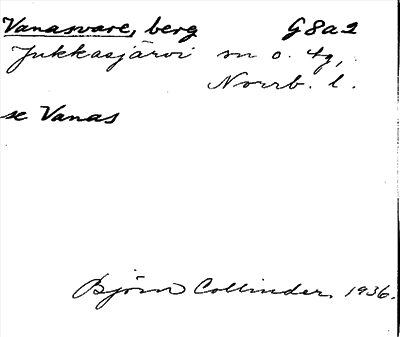 Vanasvare, berg G8a2
Jukkasjärvi sn o. tg,
Norrb. l.
se Vanas
Björn Collinder. 1936.